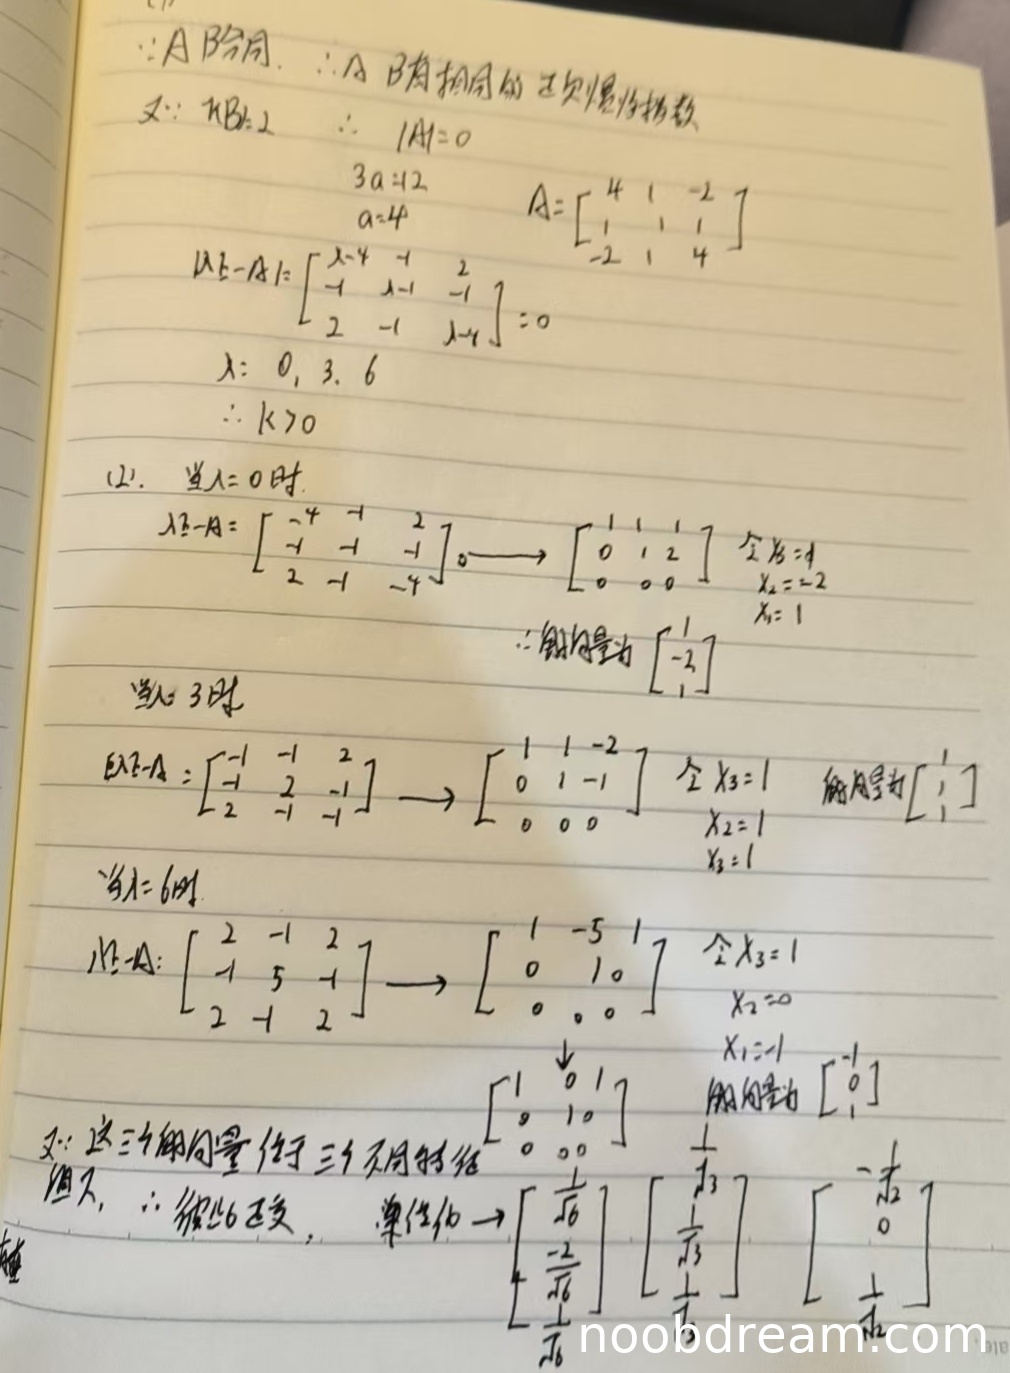 (1)
∵A B合同. ∴A B有相同的正负惯性指数
又∵ r(B)=2 ∴ |A|=0
3a=12
a=4
A=[4 1 -2
1 1 1
-2 1 4]
|λE-A|=[λ-4 -1 2
-1 λ-1 -1
2 -1 λ-4]=0
λ= 0, 3. 6
∴ k>0
(2). 当λ=0时.
λE-A=[-4 -1 2
-1 -1 -1
2 -1 -4] → [1 1 1
0 1 2
0 0 0] 令x3=1
x2=-2
x1=1
∴ 向量为[1
-2
1]
当λ=3时
λE-A=[-1 -1 2
-1 2 -1
2 -1 -1] → [1 1 -2
0 1 -1
0 0 0] 令x3=1
x2=1
x3=1
向量为[1
1
1]
当λ=6时
λE-A=[2 -1 2
-1 5 -1
2 -1 2] → [1 -5 1
0 1 0
0 0 0] 令x3=1
x2=0
x1=-1
↓
[1 0 1
0 1 0
0 0 0]
向量为[-1
0
1]
又∵ 这三个向量位于三个不同特征
值下, ∴ 彼此正交, 单位化→[1/√6
-2/√6
1/√6] [1/√3
1/√3
1/√3] [-1/√2
0
1/√2]
noobdream.com